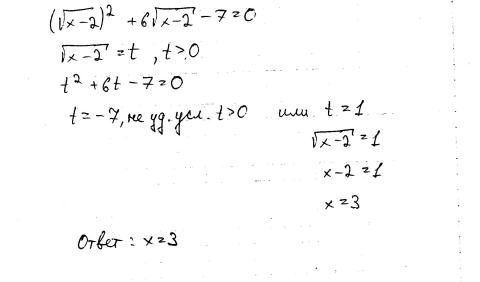 (√x-2)² + 6√x-2 - 7 = 0
√x-2 = t, t>0
t² + 6t - 7 = 0
t = -7, не уд. усл. t>0 или t = 1
√x-2 = 1
x-2 = 1
x = 3
Ответ: x = 3